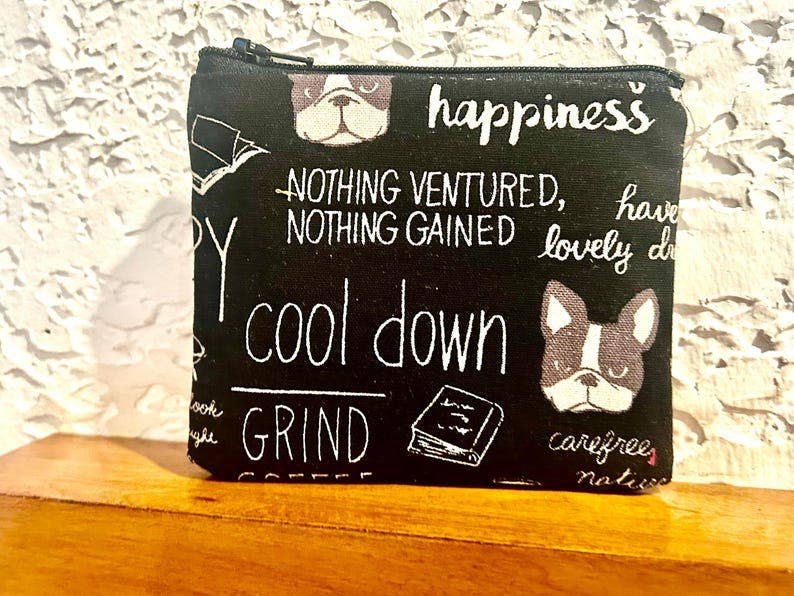 happiness
NOTHING VENTURED,
NOTHING GAINED
have
lovely
PY
cool down
GRIND
COFFEE
look
carefree,